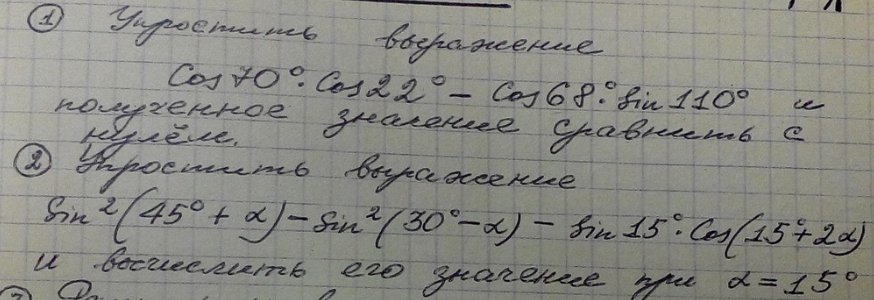 ① Упростить выражение
Cos70°·Cos22° – Cos68°·Sin110° и
полученное значение сравнить с
нулём.
② Упростить выражение
Sin²(45°+α)–Sin²(30°–α) – Sin15°·Cos(15°+2α)
и вычислить его значение при α=15°